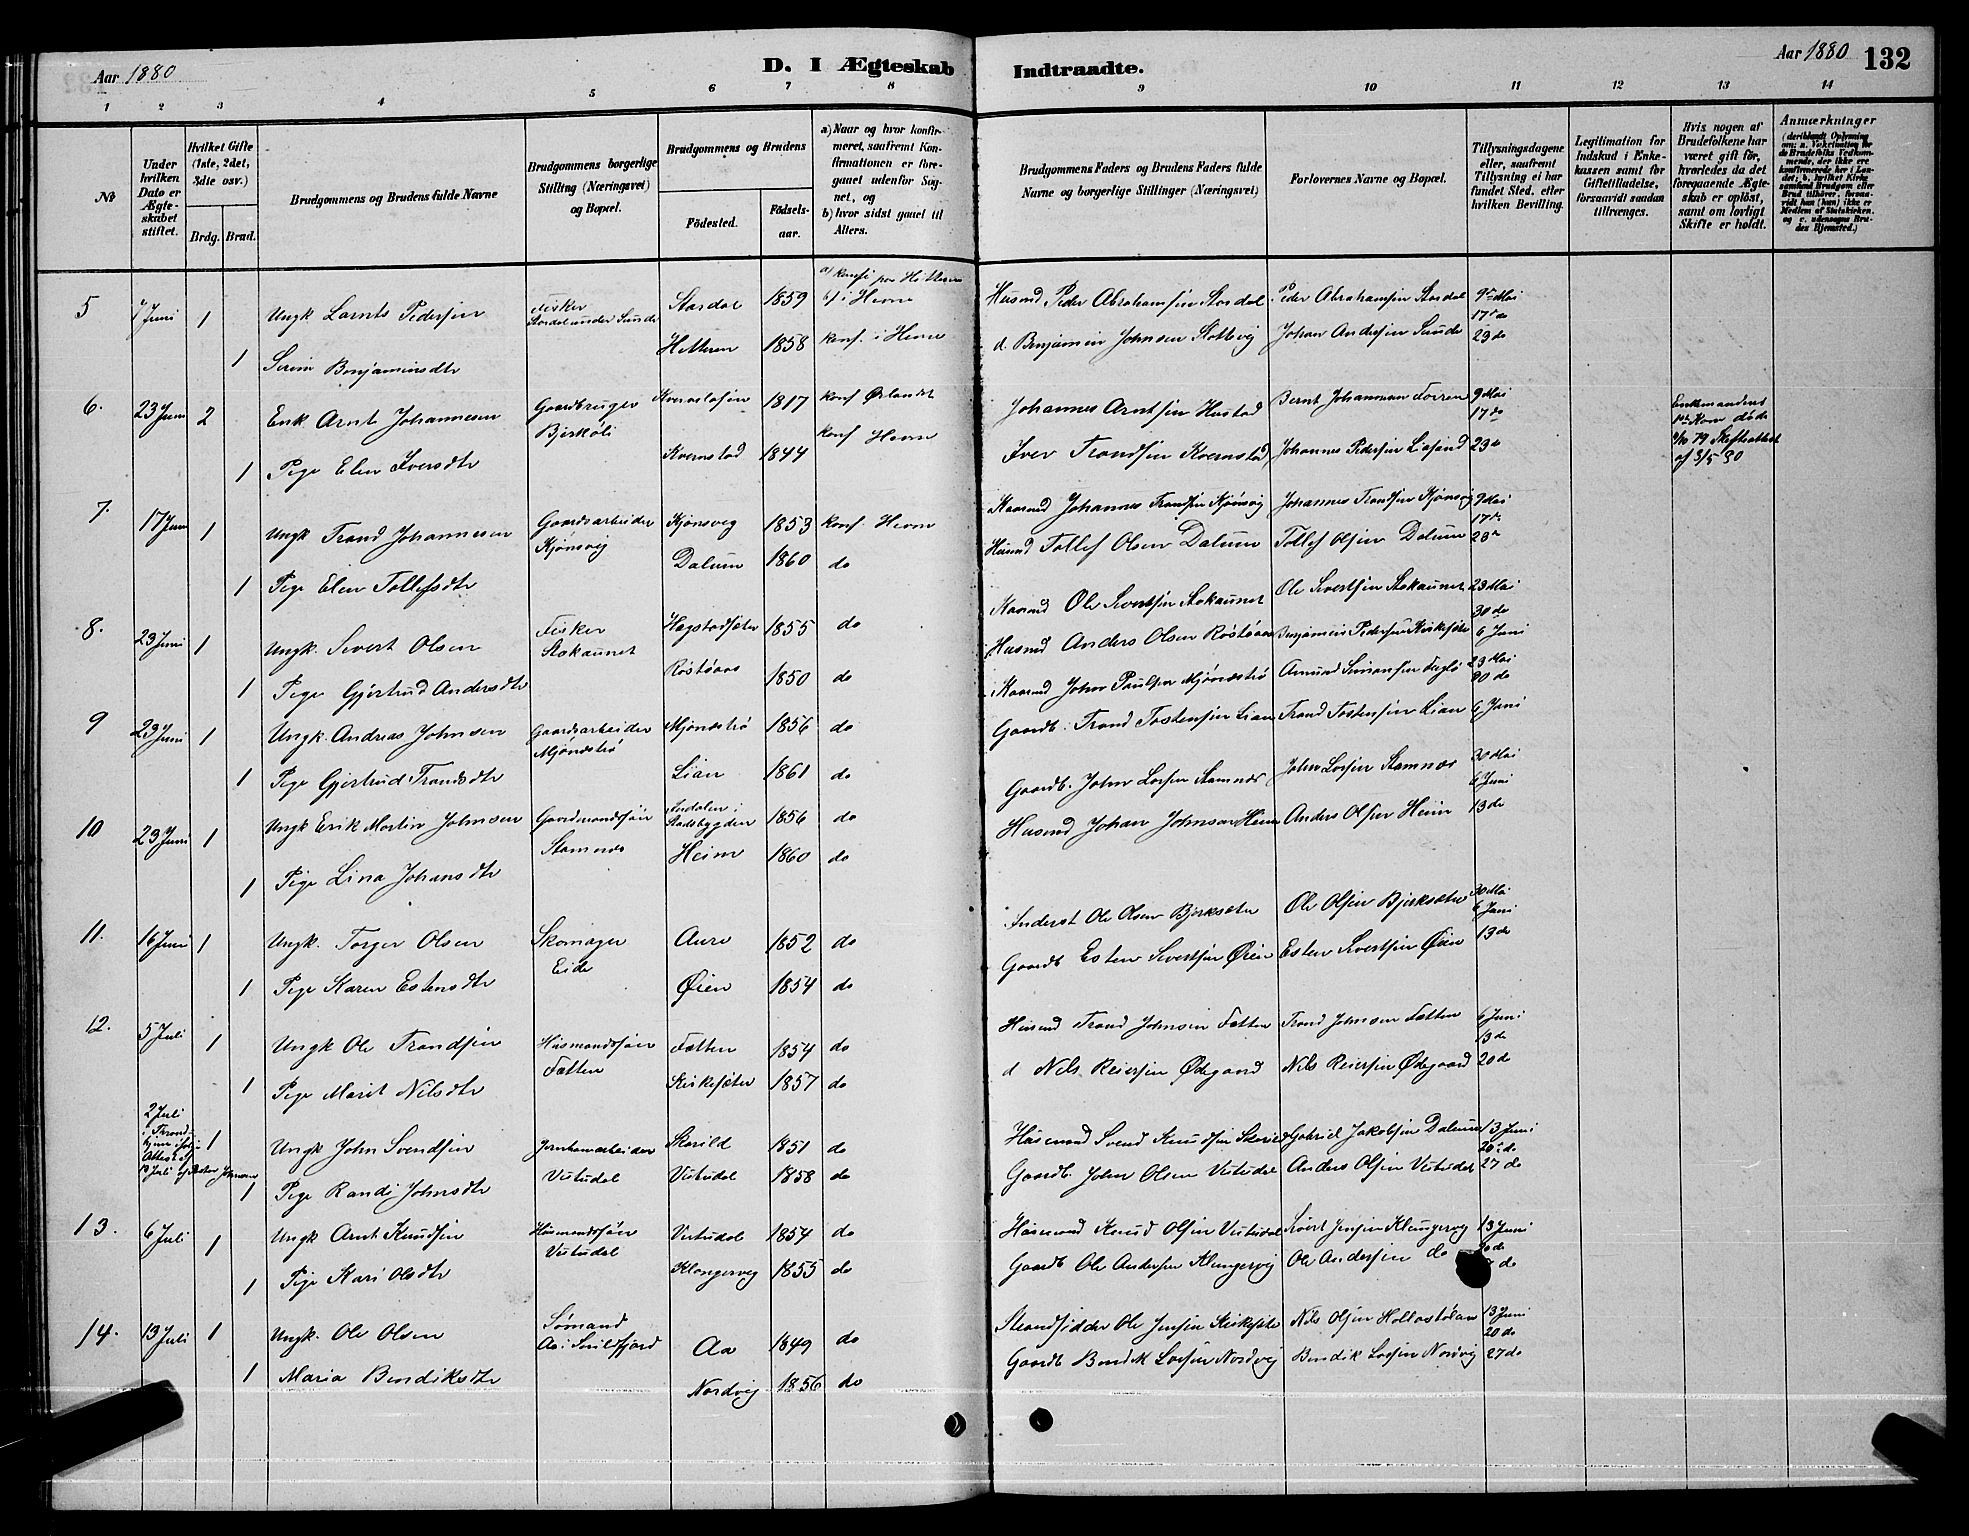 Aar 1880
D. I Ægteskab Indtraadte.
Aar 1880 132
1 2 3 4 5 6 7 8 9 10 11 12 13 14
No
Under hvilken Dato er Ægteskabet stiftet.
Hvilket Gifte (1ste, 2det, 3die osv.)
Brdg. Brud.
Brudgommens og Brudens fulde Navne
Brudgommens borgerlige Stilling (Næringsvei) og Bopæl.
Brudgommens og Brudens
Fødested. Fødselsaar.
a) Naar og hvor konfirmeret, saafremt Konfirmationen er foregaaet udenfor Sognet, og
b) hvor sidst gaaet til Alters.
Brudgommens Faders og Brudens Faders fulde Navne og borgerlige Stillinger (Næringsvei)
Forlovernes Navne og Bopæl.
Tillysningsdagene eller, saafremt Tillysning ei har fundet Sted, efter hvilken Bevilling.
Legitimation for Indskud i Enkekassen samt for Giftetilladelse, forsaavidt saadan tiltrænges.
Hvis nogen af Brudefolkene har været gift før, hvorledes da det foregaaende Ægteskab er opløst, samt om lovligt Skifte er holdt.
Anmærkninger
5 7 Juni 1 Ungk Lornts Pedersen Fisker Stordal under Sunde Stordal 1859 a) konf. paa Hitteren b) i Hevne Husmd Peder Abrahamsen Stordal Peder Abrahamsen Stordal 9de Mai
17de
1 Serine Benjaminsdtr Hitteren 1858 konf. i Hevne d. Benjamin Johnsen Johan Andersen Sunde 23 do
6. 23 Juni 2 Enk Arnt Johannesen Gaardbruger Bjerkøli 1817 konf Ørlandet Johannes Arntsen Hustad Bernt Johannesen Forren 9 Mai
17 do
1 Pige Elen Iversdtr Kvernstad 1844 konf Hevne Iver Trondsen Kvernstad Johannes Pedersen 23 do
Enkemandens Kone døde 79 Skifteattest af 3/5 80
7. 17 Juni 1 Ungk Trond Johannesen Gaardsarbeider Kjønsvig Kjønsvig 1853 konf Hevne Gaardmd Johannes Trondsen Kjønsvig Johannes Trondsen Kjønsvig 9 Mai
17 do
1 Pige Elen Tollefsdtr Dalum 1860 do Husmd Tollef Olsen Dalum Tollef Olsen Dalum 23 do
8. 23 Juni 1 Ungk. Sivert Olsen Fisker Stokaunet Hagstadsæter 1855 do Gaardmd Ole Sivertsen Stokaunet Ole Sivertsen Stokaunet 23 Mai
30 do
1 Pige Gjertrud Andersdtr Røstøaas 1850 do Husmd Anders Olsen Røstøaas Benjamin Pedersen Kirkesæter 6 Juni
9 23 Juni 1 Ungk. Andreas Johnsen Gaardsarbeider Mjønestrø Mjønestrø 1856 do Gaardmd John Paulsen Mjønestrø Amund Simonsen 23 Mai
30 do
1 Pige Gjertrud Trondsdtr Lian 1861 do Gaardb. Trond Tostensen Lian Trond Tostensen Lian 6 Juni
10 23 Juni 1 Ungk Erik Martin Johnsen Gaardmandssøn Stamnes i Stadsbygden 1856 do Gaardb. John Larsen Stamnes John Larsen Stamnes 30 Mai
6 Juni
1 Pige Lina Johansdtr Heim 1860 do Husmd Johan Johnsen Heim Anders Olsen Heim 13 do
11. 16 Juni 1 Ungk. Torger Olsen Skomager Eide Aure 1852 do Inderst Ole Olsen Bjerksæter Ole Olsen Bjerksæter 30 Mai
6 Juni
1 Pige Karen Estensdtr Øien 1854 do Gaardb Esten Sivertsen Øien Esten Sivertsen Øien 13 do
12. 5 Juli 1 Ungk Ole Trondsen Husmandssøn Fætten Fætten 1854 do Husmd Trond Johnsen Fætten Trond Johnsen Fætten 6 Juni
13 do
1 Pige Marit Nilsdtr Kirkesæter 1857 do d Nils Reiersen Ødegaard Nils Reiersen Ødegaard 20 do
2 Juli i Throndhjem ifølge Attest af 10 Juli af Pastor 1 Ungk John Svendsen Jernbanearbeider Vitsdal Skorild 1851 do Husmand Svend Knudsen Skorild Gabriel Jakobsen Dalum 13 Juni
20 do
1 Pige Randi Johnsdtr Vitsdal 1858 do Gaardb. John Olsen Vitsdal Anders Olsen Vitsdal 27 do
13. 6 Juli 1 Ungk Arnt Knudsen Husmandssøn Vitsdal Vitsdal 1854 do Husmand Knud Olsen Vitsdal Sivert Jensen Klungervig 13 Juni
20 do
1 Pige Kari Olsdtr Klungervig 1855 do Gaardb Ole Andersen Klungervig Ole Andersen do do
14. 13 Juli 1 Ungk. Ole Olsen Sømand Aa i Snildfjord Aa 1849 do Strandsidder Ole Jensen Kirkesæter Nils Olsen Hollastølan 13 Juni
20 do
1 Maria Bendiksdtr Nordvig 1856 do Gaardb Bendik Larsen Nordvig Bendik Larsen Nordvig 27 do